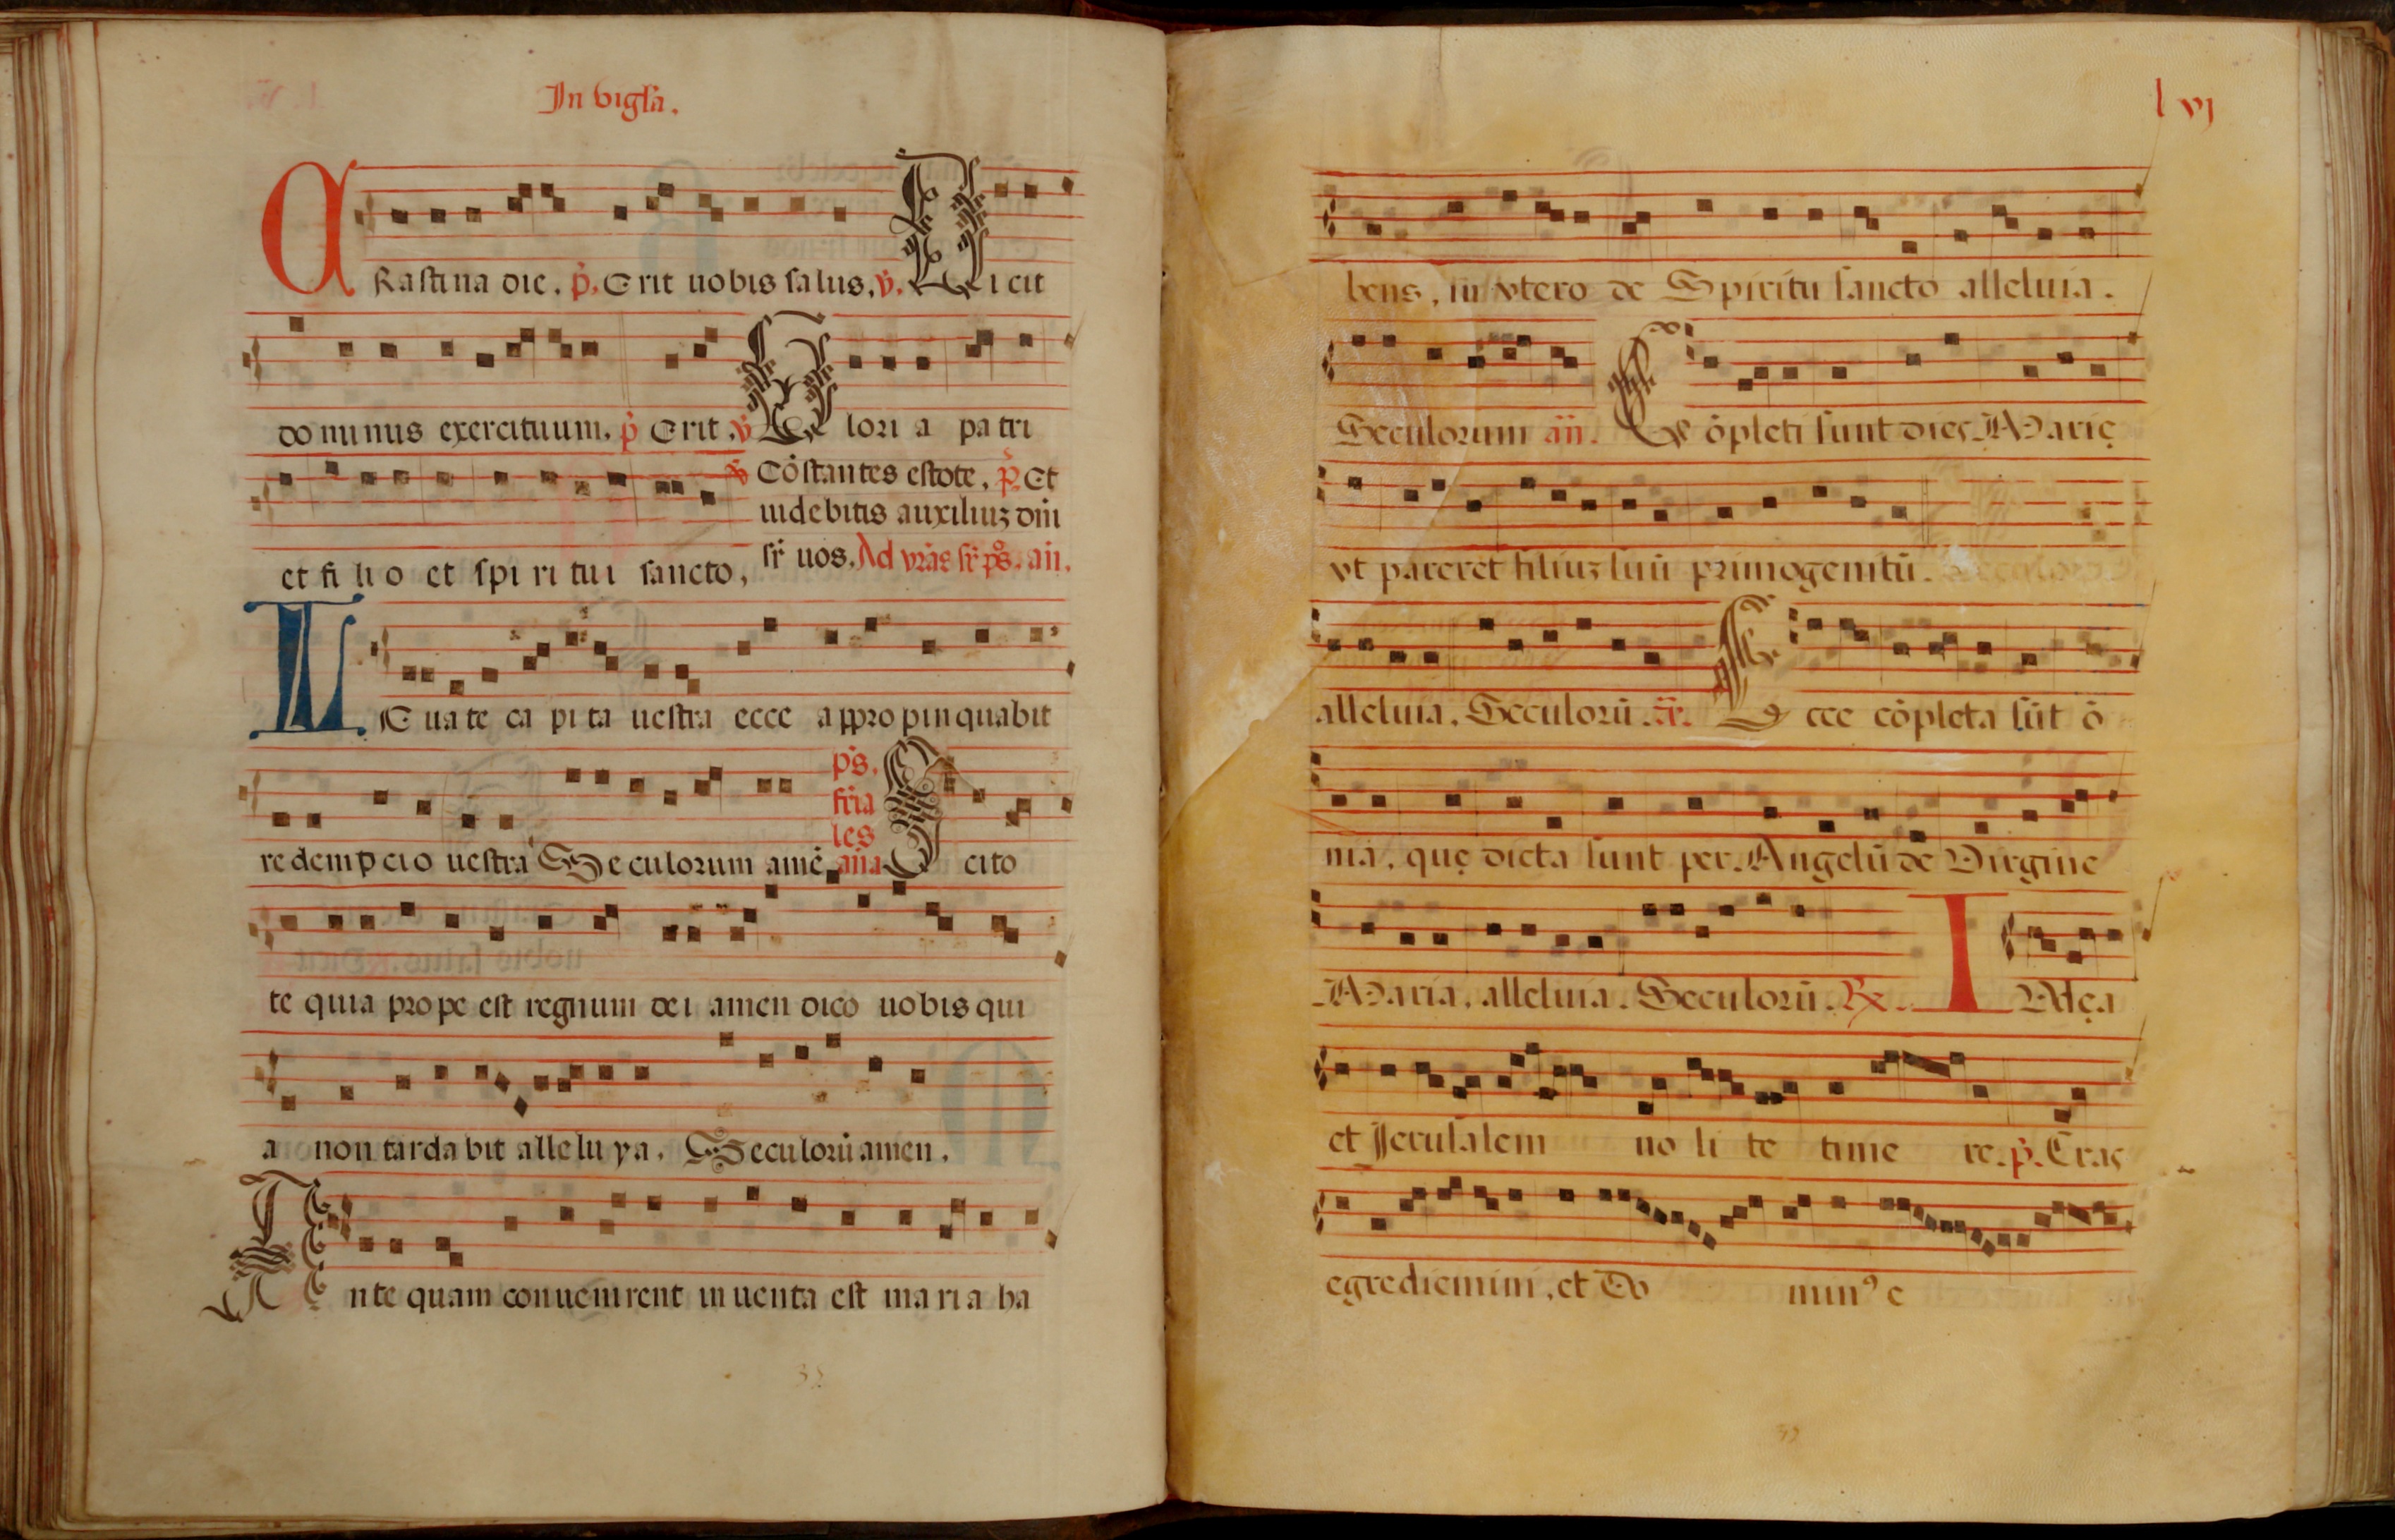 In vigľa.
CRastina die. p̃. Erit uobis salus. ṽ. Dicit
dominus exercituum. p̃ Erit. ṽ Gloria patri
et filio et spiritui sancto,
ṽ Cōstantes estote. p̃. Et
uidebitis auxiliuz dñi
sr̃ uos. Ad vr̃as sr̃ ps̃. añ.
LEuate capita uestra ecce appropinquabit
redempcio uestra Seculorum amē
ps̃.
feria
les
aña
Scito
te quia prope est regnum dei amen dico uobis qui
a non tardabit alleluya. Seculorū amen.
Antequam conuenirent inuenta est maria ha
35
lvj
bens, in vtero de Spiritu sancto alleluia.
Seculorum añ. Cōpleti sunt dies Marię
vt pareret filiuz suū primogenitū.
alleluia. Seculorū. Ecce cōpleta sūt ō
nia, quę dicta sunt per Angelū de Virgine
Maria, alleluia. Seculorū. ℟. IVdęa
et Jerusalem nolite timere. p̃. Cras
egrediemini, et Do minꝰ e